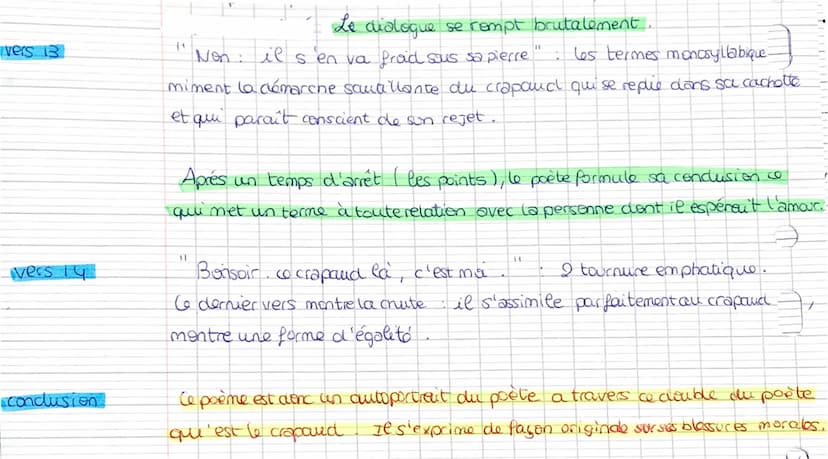 Le dialogue se rompt brutalement.
vers 13
"Non : il s'en va froid sus sa pierre" : les termes monosyllabique
miment la démarche sautillante du crapaud qui se replie dans sa cachette
et qui paraît conscient de son rejet.
Après un temps d'arrêt (les points), le poète formule sa conclusion ce
qui met un terme à toute relation avec la personne dont il espérait l'amour.
vers 14
"Bonsoir. ce crapaud là, c'est moi." : 2 tournure emphatique.
Ce dernier vers montre la chute : il s'assimile parfaitement au crapaud
montre une forme d'égalité.
conclusion
Ce poème est donc un autoportrait du poète a travers ce double du poète
qu'est le crapaud. Il s'exprime de façon originale sur ses blessures morales.